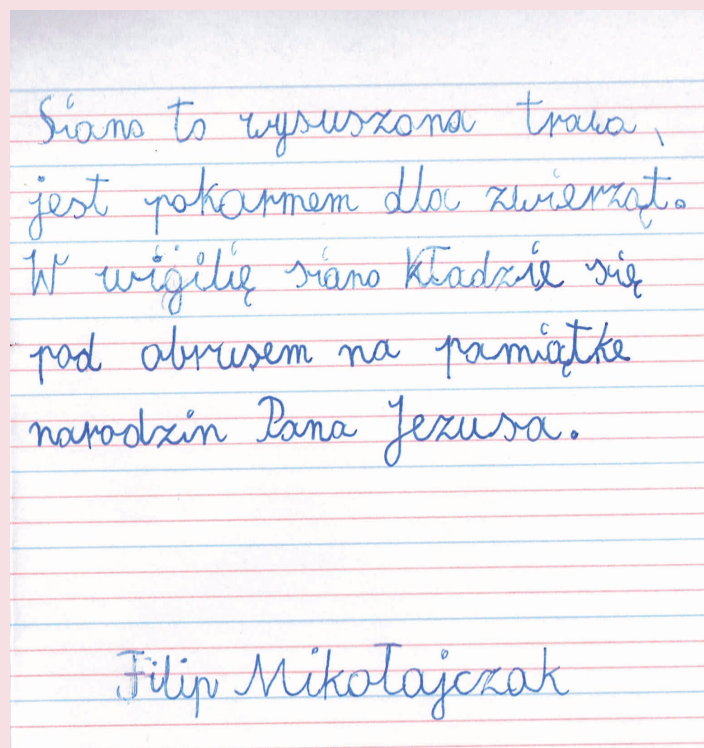 Siano to wysuszona trawa,
jest pokarmem dla zwierząt.
W wigilię siano kładzie się
pod obrusem na pamiątke
narodzin Pana Jezusa.
Filip Mikołajczak